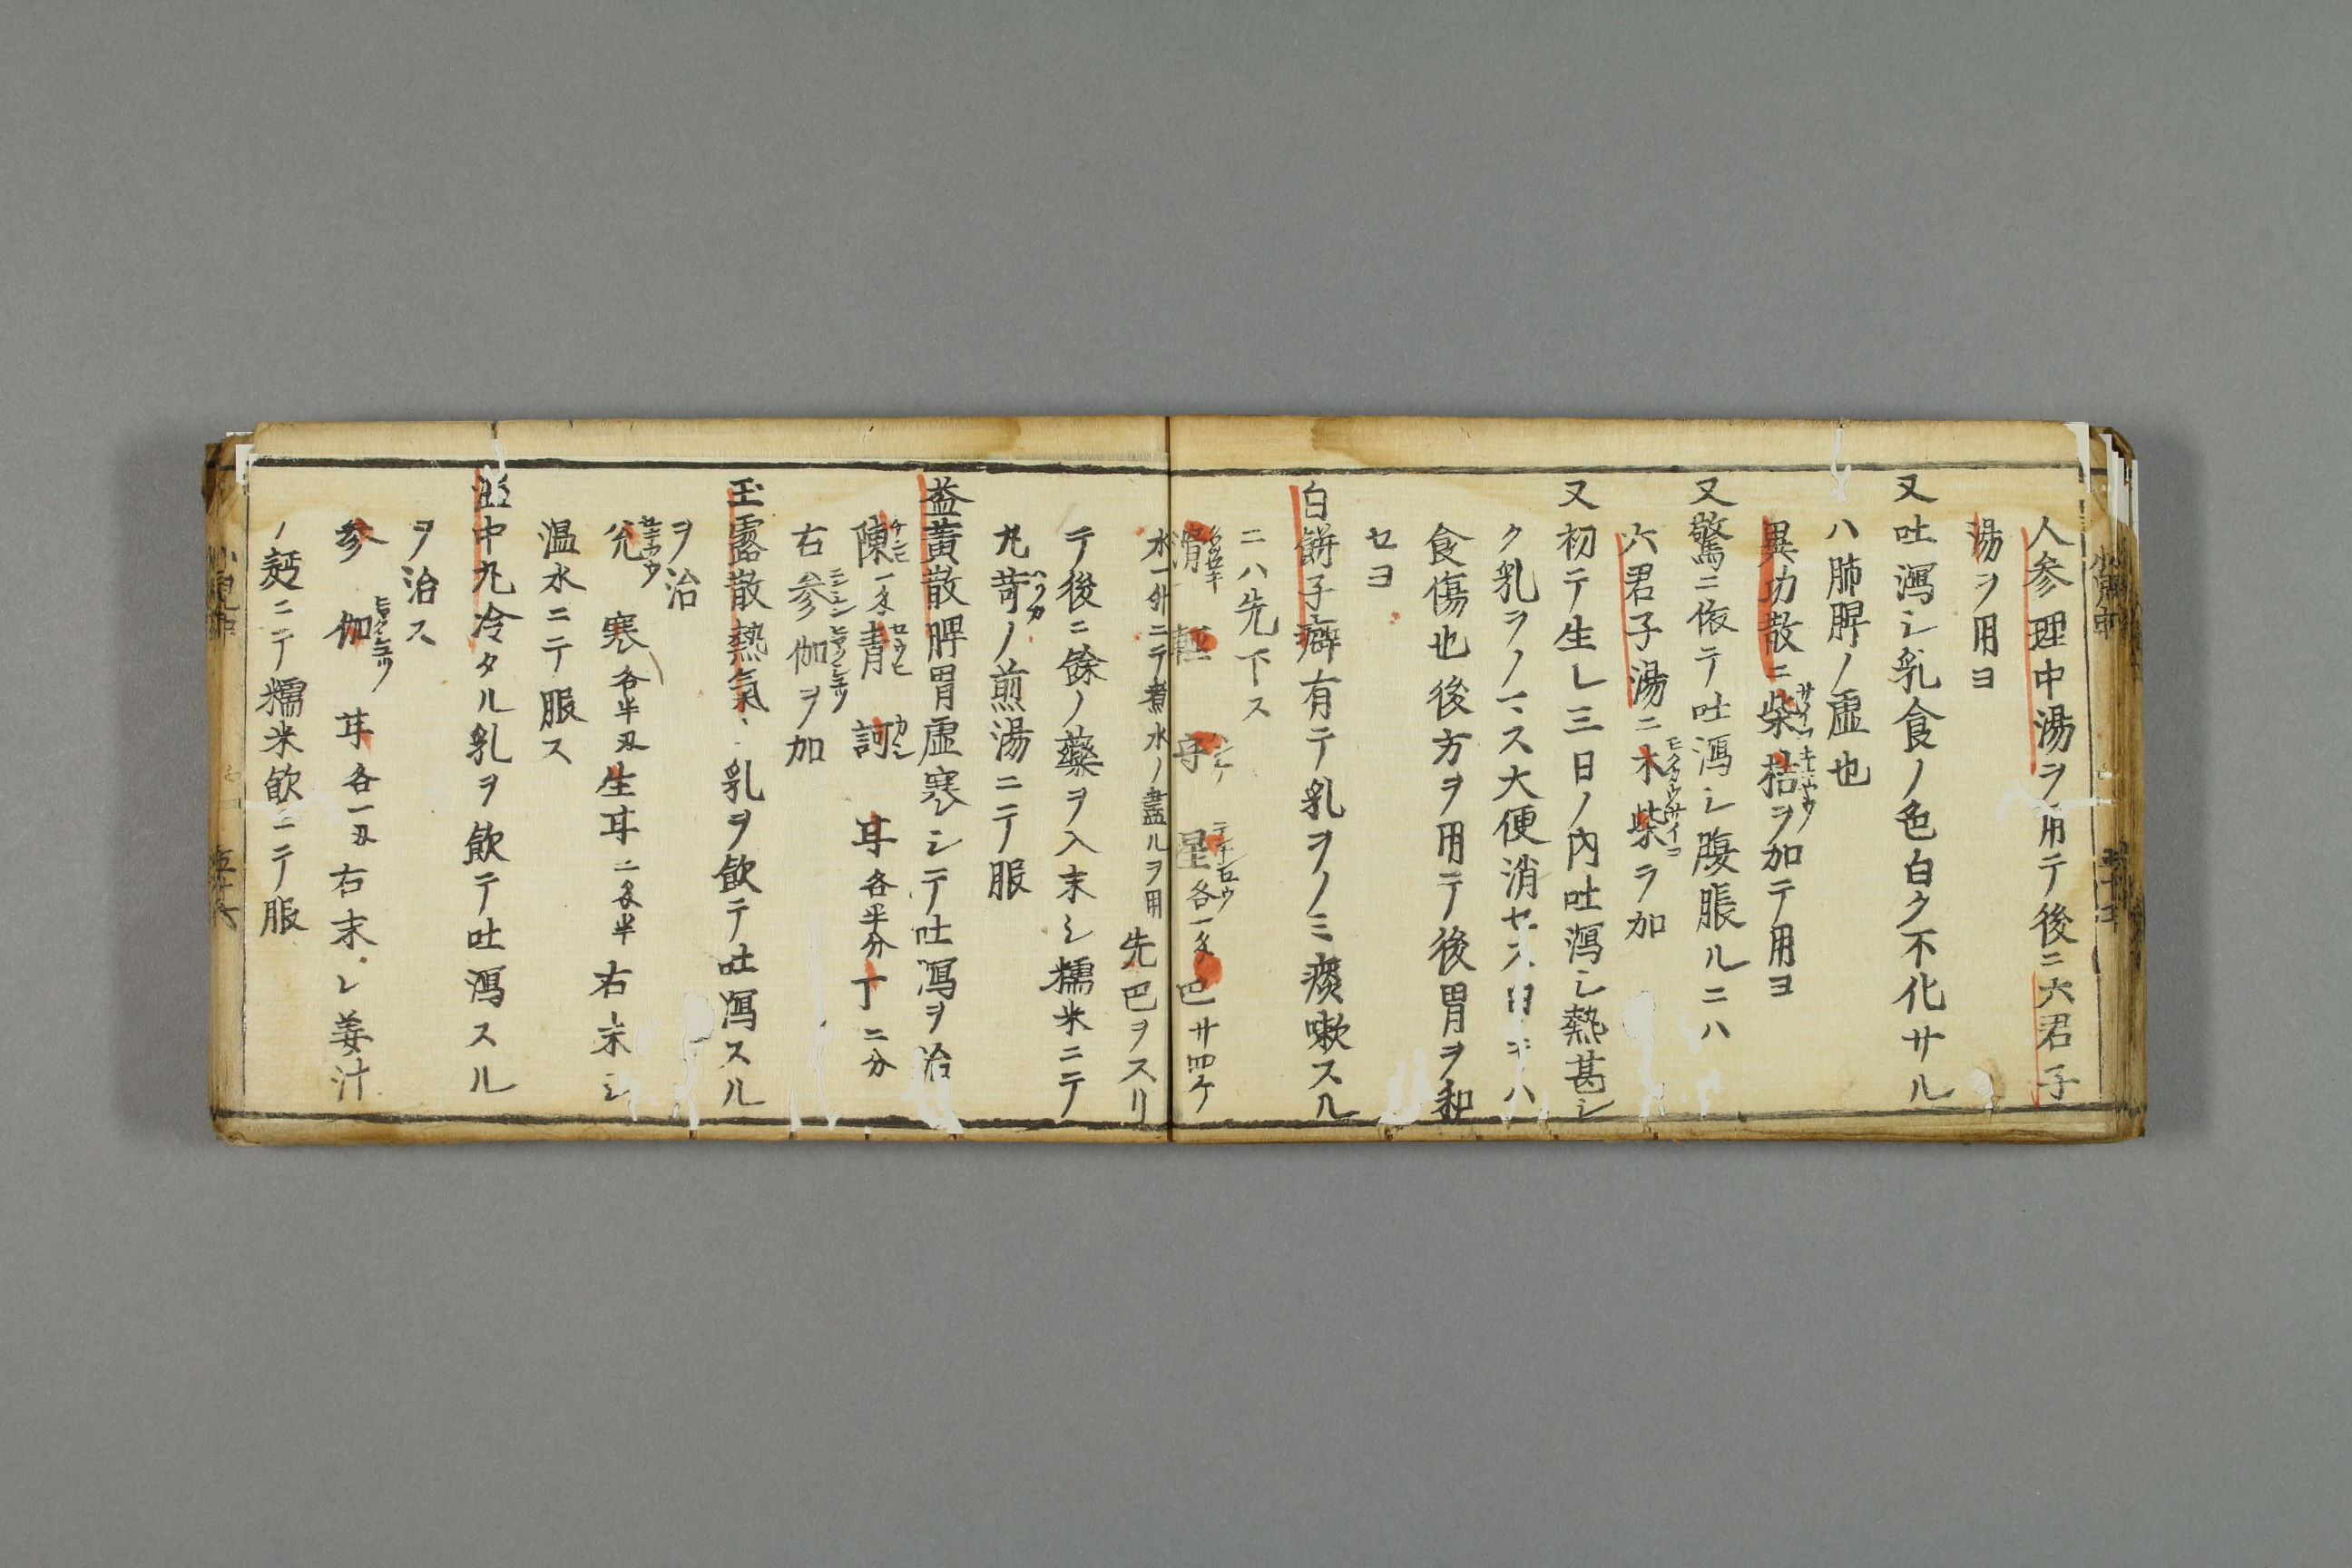 人参理中湯ヲ用テ後ニ六君子
湯ヲ用ヨ
又吐瀉シ乳食ノ色白ク不化サル
ハ肺脾ノ虚也
異功散ニ柴桔ヲ加テ用ヨ
又驚ニ依テ吐瀉シ腹脹ルニハ
六君子湯ニ木柴ヲ加
又初テ生レ三日ノ内吐瀉シ熱甚シ
ク乳ヲノマス大便消セス
食傷也後方ヲ用テ後胃ヲ和
セヨ
白餅子癖有テ乳ヲノミ痰嗽スル
ニハ先下ス
滑 軽 守 星各一匁巴廿四ケ
水一升ニテ煮水ノ盡ルヲ用 先巴ヲスリ
テ後ニ餘ノ藥ヲ入末シ糯米ニテ
丸苛ノ煎湯ニテ服
益黄散脾胃虚寒シテ吐瀉ヲ治
陳一匁青 訶 耳各半分丁二分
右参伽ヲ加
玉露散熱氣乳ヲ飲テ吐瀉スル
ヲ治
寒各半刄生耳二匁半右末シ
温水ニテ服ス
中丸冷タル乳ヲ飲テ吐瀉スル
ヲ治ス
参 伽 耳各一刄右末シ姜汁
ノ麫ニテ糯米飲ニテ服